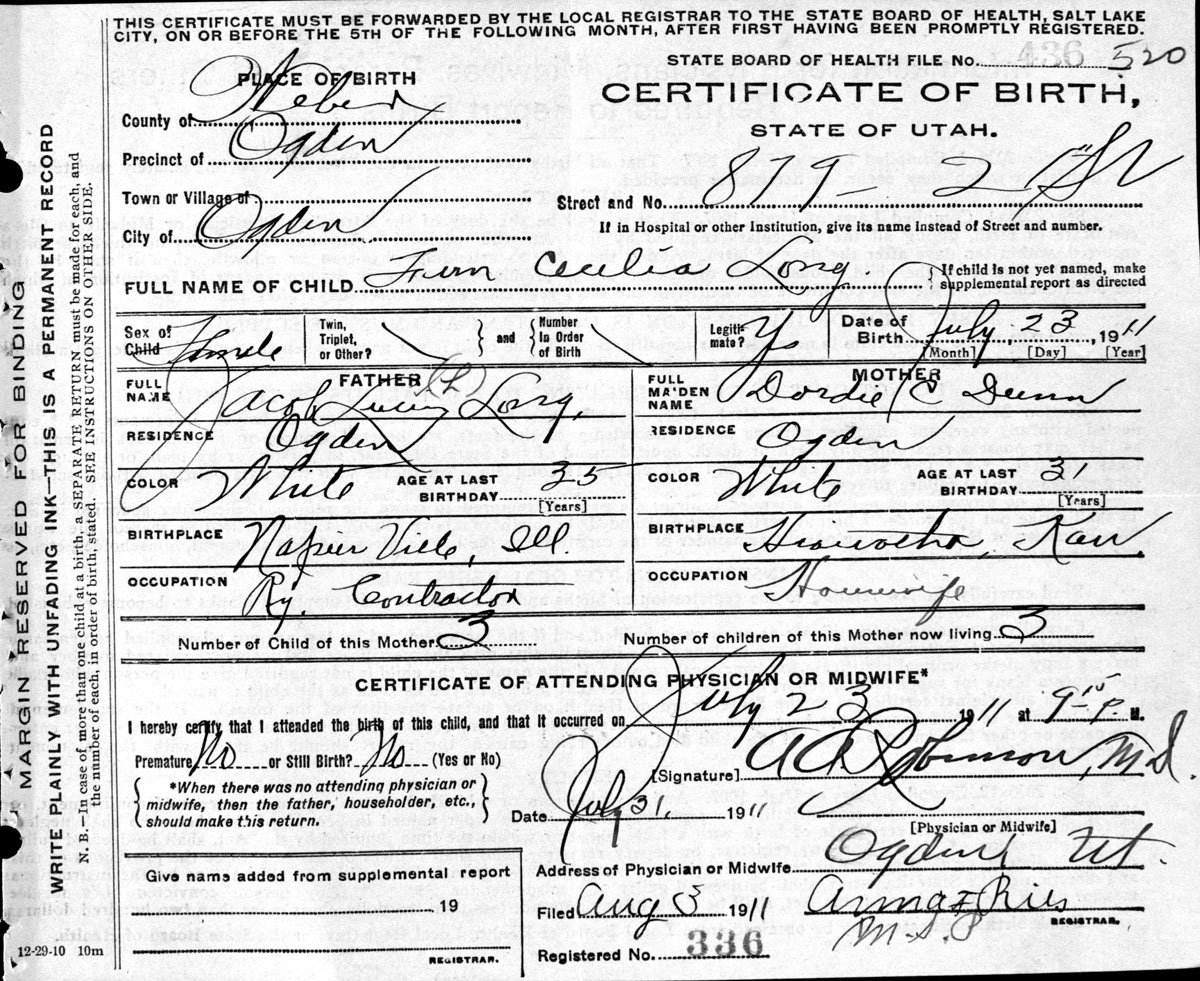 THIS CERTIFICATE MUST BE FORWARDED BY THE LOCAL REGISTRAR TO THE STATE BOARD OF HEALTH, SALT LAKE
CITY, ON OR BEFORE THE 5TH OF THE FOLLOWING MONTH, AFTER FIRST HAVING BEEN PROMPTLY REGISTERED.
STATE BOARD OF HEALTH FILE No. 436 520
PLACE OF BIRTH
CERTIFICATE OF BIRTH,
STATE OF UTAH.
County of Weber
Precinct of Ogden
Town or Village of
Street and No. 879 - 2" St
City of Ogden
If in Hospital or other Institution, give its name instead of Street and number.
FULL NAME OF CHILD Fern Cecilia Long
{ If child is not yet named, make
supplemental report as directed
Sex of Child Female
Twin, Triplet, or Other?
and
Number In Order of Birth
Legiti-mate? Y
Date of Birth July 23 1911
[Month] [Day] [Year]
FATHER
FULL NAME Jacob Long (L)
RESIDENCE Ogden
COLOR White AGE AT LAST BIRTHDAY 35
[Years]
BIRTHPLACE Naper Ville, Ill.
OCCUPATION Ry. Contractor
MOTHER
FULL MAIDEN NAME Dordie C Dunn
RESIDENCE Ogden
COLOR White AGE AT LAST BIRTHDAY 31
[Years]
BIRTHPLACE Hiawatha, Kan.
OCCUPATION Housewife
Number of Child of this Mother 3 Number of children of this Mother now living 3
CERTIFICATE OF ATTENDING PHYSICIAN OR MIDWIFE*
I hereby certify that I attended the birth of this child, and that it occurred on July 23 1911 at 9 15 P. M.
Premature No or Still Birth? No (Yes or No)
*When there was no attending physician or
midwife, then the father, householder, etc.,
should make this return.
[Signature] M.D.
Date July 31, 1911
[Physician or Midwife]
Address of Physician or Midwife Ogden Ut.
Give name added from supplemental report
19
REGISTRAR.
Filed Aug 3 1911 Anna F Ries
REGISTRAR.
Registered No. 336
12-29-10 10m
MARGIN RESERVED FOR BINDING
WRITE PLAINLY WITH UNFADING INK—THIS IS A PERMANENT RECORD
N. B.—In case of more than one child at a birth, a SEPARATE RETURN must be made for each, and
the number of each, in order of birth, stated. SEE INSTRUCTIONS ON OTHER SIDE.